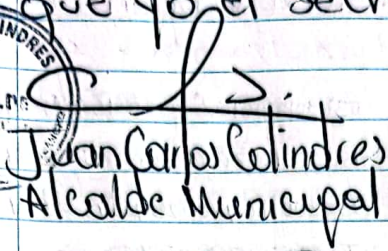 que yo el Secr
INDRES
Juan Carlos Colindres
Alcalde Municipal